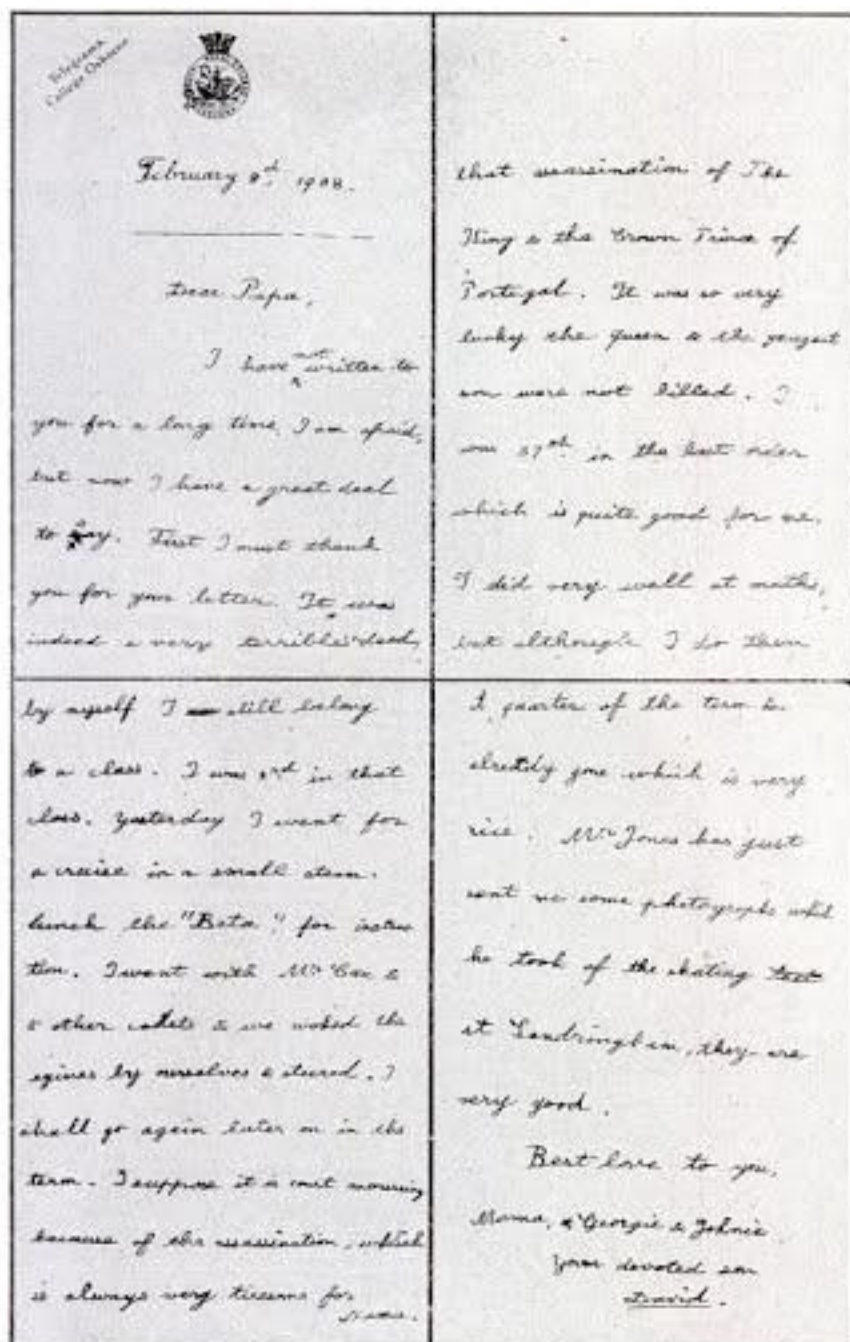 Telegrams,
College Osborne
February 8th 1908.
Dear Papa,
I have not written to
you for a long time, I am afraid,
but now I have a great deal
to say. First I must thank
you for your letter. It was
indeed a very terrible deed,
that assassination of The
King & the Crown Prince of
Portugal. It was so very
lucky the Queen & the youngest
son were not killed. I
was 37th in the last order
which is quite good for me.
I did very well at maths,
but although I do them
by myself I still belong
to a class. I was 3rd in that
class. Yesterday I went for
a cruise in a small steam-
launch the "Beta" for instruc
tion. I went with Mr Cox &
other cadets & we worked the
egines by ourselves & steered. I
shall go again later on in the
term. I suppose it is court mourning
because of the assassination, which
is always very tiresome for
Mama.
A quarter of the term is
already gone which is very
nice. Mr Jones has just
sent me some photographs which
he took of the skating
at Sandringham, they are
very good.
Best love to you,
Mama, & Georgie & Johnie
Your devoted son
David.